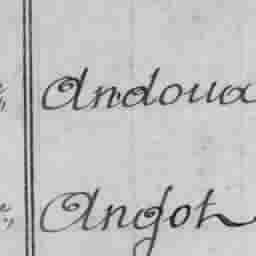 Andoua
Angot